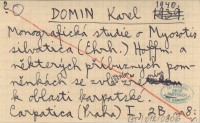 DOMIN Karel 1940.
Monografická studie o Myosotis
silvatica (Ehrh.) Hoffm. a
některých příbuzných pom-
něnkách se zvláštním
k oblasti karpatské.
Carpatica (Praha) I. 2B.